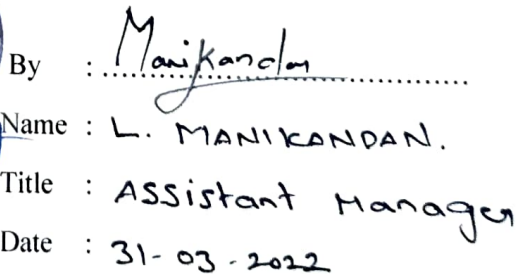 By : Manikandan
Name : L. MANIKANDAN.
Title : Assistant Manager
Date : 31-03-2022